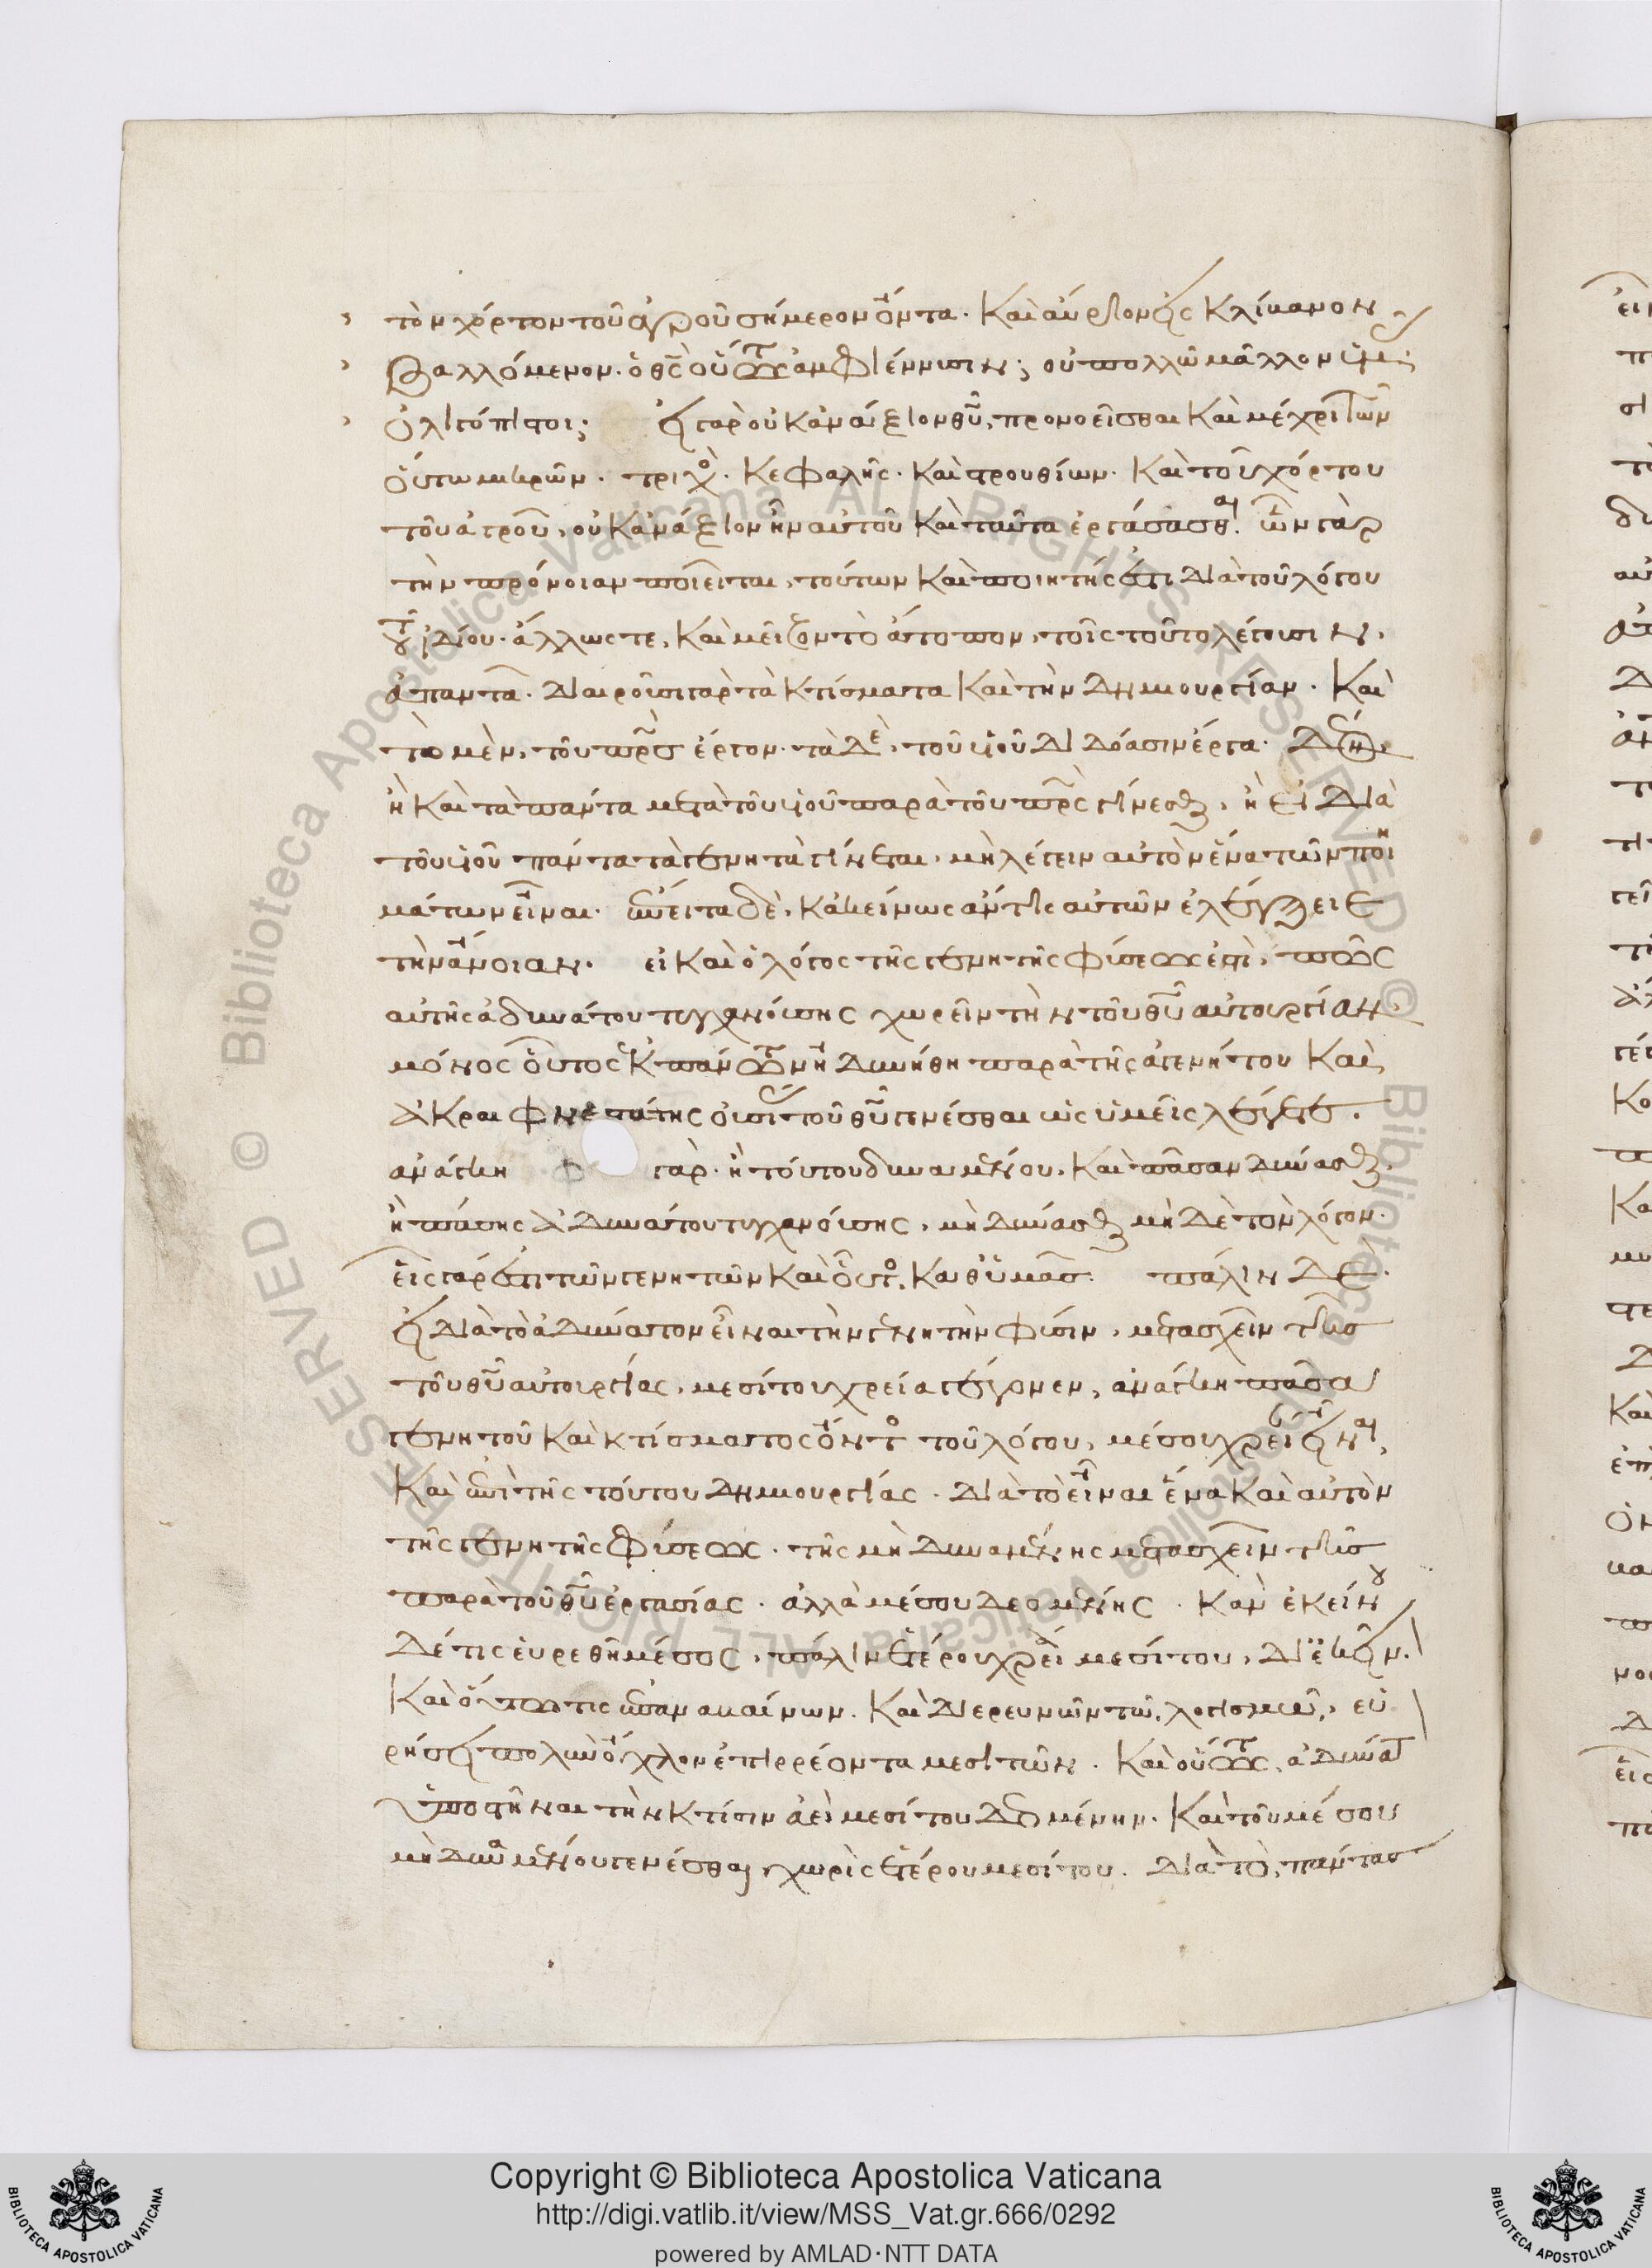 τὸν χόρτον τοῦ ἀγροῦ σήμερον ὄντα. καὶ αὔριον εἰς κλίβανον
βαλλόμενον. ὁ θς οὕτως ἀμφιέννυσιν; οὐ πολλῶ μᾶλλον ὑμας
ὀλιγόπιστοι; εἰ γὰρ οὐκ ἀνάξιον θυ, προνοεῖσθαι καὶ μέχρι τῶν
οὕτω μικρῶν. τριχο. κεφαλῆς. καὶ στρουθίων. καὶ τοῦ χόρτου
τοῦ ἀγροῦ, οὐκ ἀνάξιον ἦν αὐτοῦ καὶ ταῦτα ἐργάσασθαι. ὧν γὰρ
τὴν πρόνοιαν ποιεῖται, τούτων καὶ ποιητής ἐστι διὰ τοῦ λόγου
τοῦ ἰδίου. ἄλλως τε, καὶ μεῖζον τὸ ἄτοπον, τοῖς τοῦτο λέγουσιν,
ἀπαντᾶ. διαιροῦσι γὰρ τὰ κτίσματα καὶ τὴν δημιουργίαν. καὶ
τὸ μὲν, τοῦ πρς ἔργον. τὰ δὲ, τοῦ υἱοῦ διδόασιν ἔργα. δέον
ἢ καὶ τὰ πάντα μετὰ τοῦ υἱοῦ παρὰ τοῦ πρς γίνεσθαι, ἢ εἰ διὰ
τοῦ υἱοῦ πάντα τὰ γενητὰ γίνεται, μὴ λέγειν αὐτὸν ἕνα τῶν ποιη
μάτων εἶναι. ἔπειτα δὲ, κἀκείνως ἄν τις αὐτῶν ἐλέγξειε
τὴν ἄνοιαν. εἰ καὶ ὁ λόγος τῆς γενητῆς φύσεως ἐστὶ, πῶς
αὐτῆς ἀδυνάτου τυγχανούσης χωρεῖν τὴν τοῦ θυ αὐτουργίαν,
μόνος οὗτος ἐκ πάντων ἠδυνήθη παρὰ τῆς ἀγενήτου καὶ
ἀκραιφνεστάτης οὐσίας τοῦ θυ γενέσθαι ὡς ὑμεῖς λέγετε.
ἀνάγκη γὰρ. ἢ τούτου δυναμένου, καὶ πᾶσαν δύνασθαι,
ἢ πάσης ἀδυνάτου τυγχανούσης, μὴ δύνασθαι μὴ δὲ τὸν λόγον.
εἷς γάρ ἐστι τῶν γενητῶν καὶ οὗτος, καθ' ὑμᾶς. πάλιν δὲ.
εἰ διὰ τὸ ἀδύνατον εἶναι τὴν γενητὴν φύσιν, μετασχεῖν τῆς
τοῦ θυ αὐτουργίας, μεσίτου χρεία γέγονεν, ἀνάγκη πᾶσα
γενητοῦ καὶ κτίσματος ὄντος τοῦ λόγου, μέσου χρείαν εἶναι,
καὶ ἐπὶ τῆς τούτου δημιουργίας. διὰ τὸ εἶναι ἕνα καὶ αὐτὸν
τῆς γενητῆς φύσεως. τῆς μὴ δυναμένης μετασχεῖν τῆς
παρὰ τοῦ θυ ἐργασίας. ἀλλὰ μέσου δεομένης. κἂν ἐκείνου
δέ τις εὑρεθῆ μέσος, πάλιν ἑτέρου χρεία μεσίτου, δι' ἐκεῖνον.
καὶ οὕτω τις ἐπαναβαίνων. καὶ διερευνῶν τῶ λογισμῶ, εὑ
ρήσει πολὺν ὄχλον ἐπιρρέοντα μεσιτῶν. καὶ οὕτως, ἀδύνατ
ὑποστῆναι τὴν κτίσιν ἀεὶ μεσίτου δεομένην. καὶ τοῦ μέσου
μὴ δυναμένου γενέσθαι χωρὶς ἑτέρου μεσίτου. διὰ τὸ, πάντας
Copyright © Biblioteca Apostolica Vaticana
http://digi.vatlib.it/view/MSS_Vat.gr.666/0292
powered by AMLAD·NTT DATA